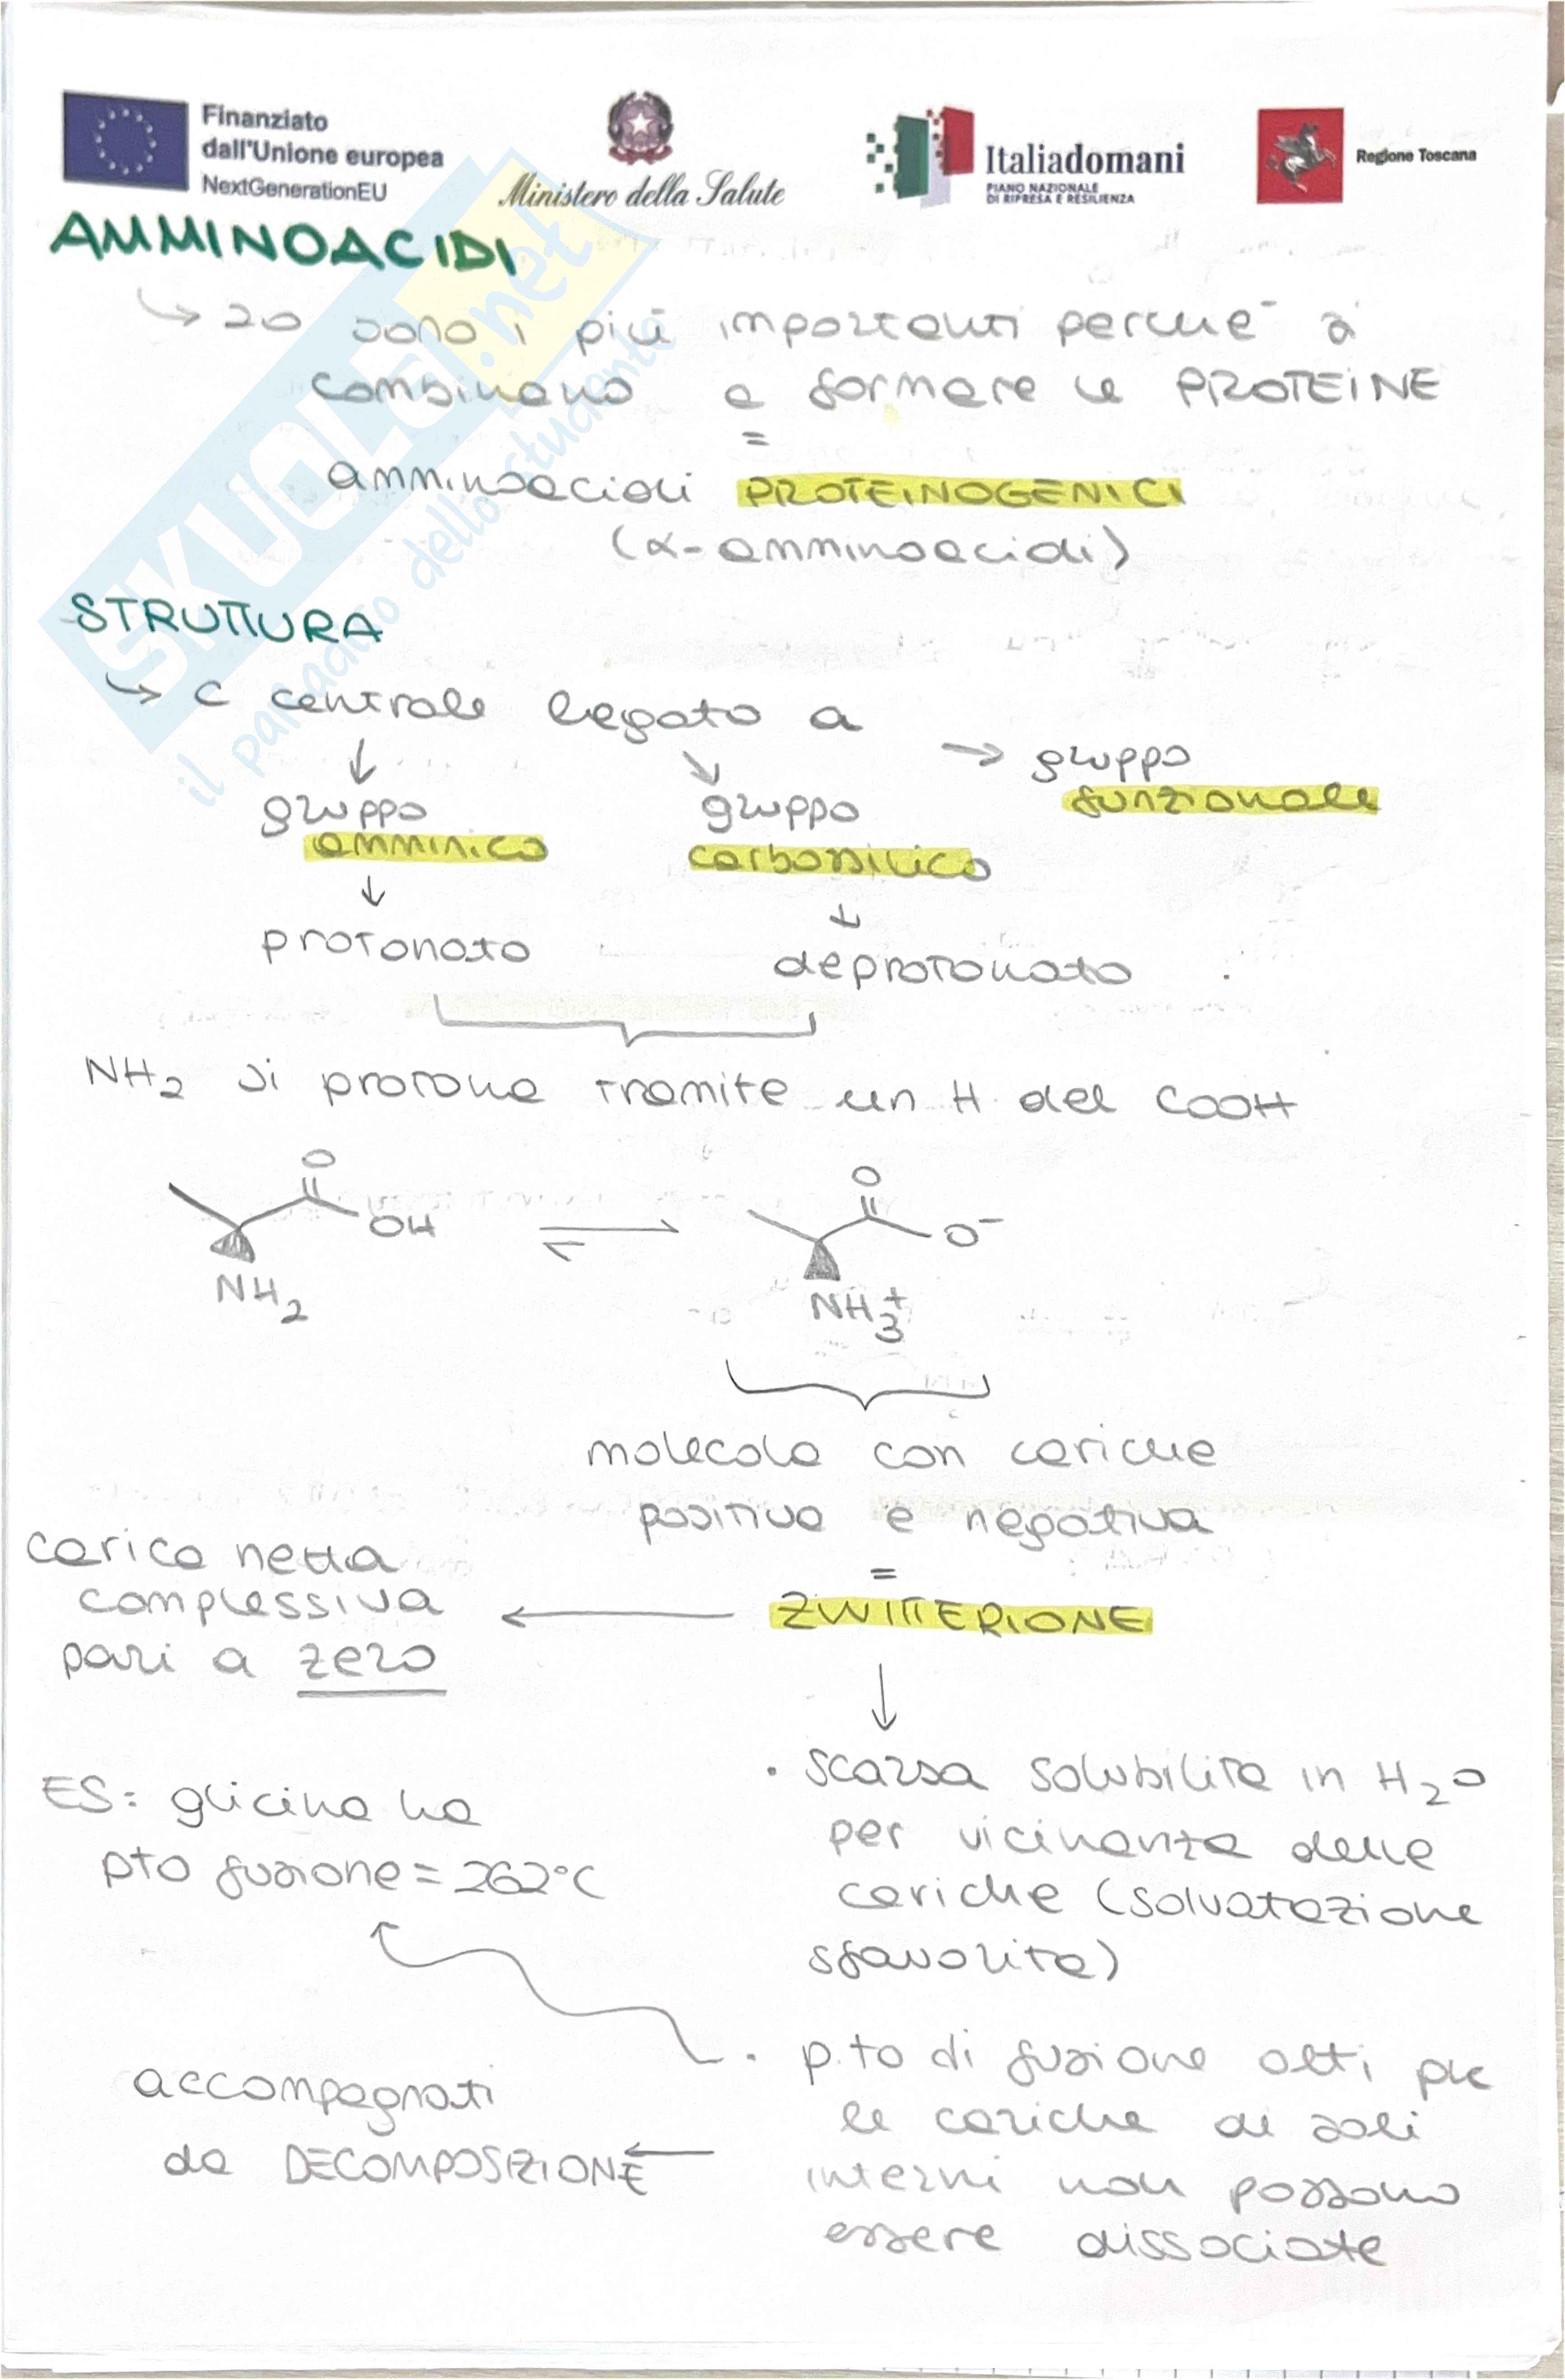 Finanziato
dall'Unione europea
NextGenerationEU
Ministero della Salute
Italiadomani
PIANO NAZIONALE
DI RIPRESA E RESILIENZA
Regione Toscana
SKUOLA.net
il paradiso dello studente
AMMINOACIDI
↳ 20 sono i più importanti perché si
combinano a formare le PROTEINE
=
amminoacidi PROTEINOGENICI
(α-amminoacidi)
STRUTTURA
↳ C centrale legato a
↓ ↘ → gruppo
gruppo gruppo funzionale
amminico carbossilico
↓ ↓
protonato deprotonato
NH2 si protona tramite un H del COOH
O O
OH ⇌ O⁻
NH2 NH3⁺
molecola con cariche
positiva e negativa
=
carica netta
complessiva ← ZWITTERIONE
pari a zero
↓
• scarsa solubilità in H2O
per vicinanza delle
cariche (solvatazione
sfavorita)
ES: glicina ha
pto fusione = 262°C
• p.to di fusione alti pk
le cariche di sali
interni non possono
essere dissociate
accompagnati
da DECOMPOSIZIONE ←